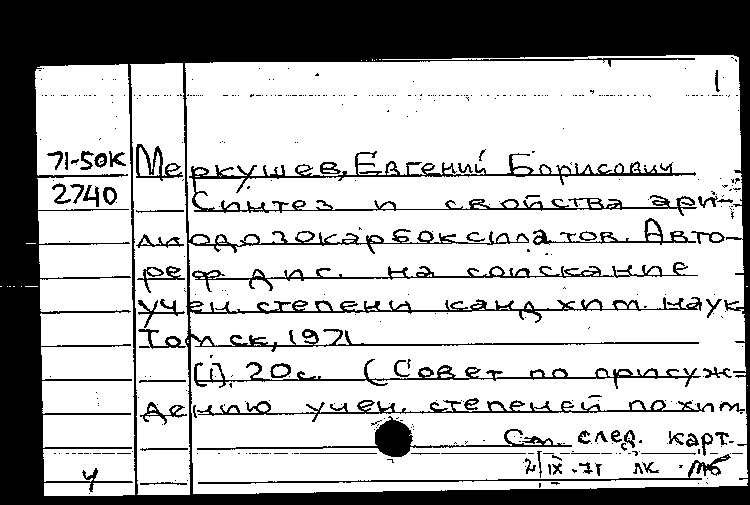 1
71-50к Меркушев, Евгений Борисович
2740 Синтез и свойства ари-
лиодозокарбоксилатов. Авто-
реф дис. на соискание
учен. степени канд хим. наук.
Томск, 1971.
[1], 20с. (Совет по присуж-
дению учен. степеней по хим.
См. след. карт.
2/IX-71 лк мб
4